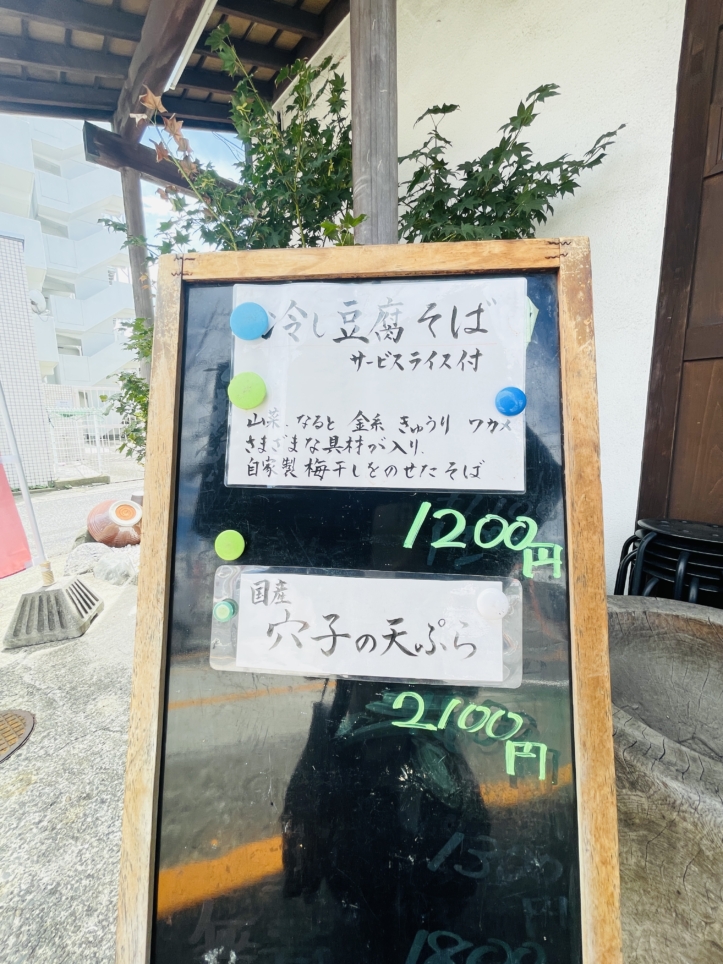 冷し豆腐そば
サービスライス付
山菜、なると 金糸 きゅうり ワカメ
さまざまな具材が入り、
自家製梅干しをのせたそば
1200円
国産
穴子の天ぷら
2100円
1800